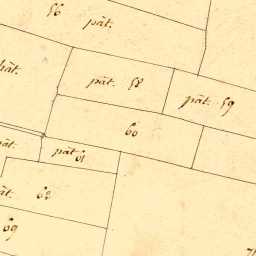 56
pât.
pât. 58
pât. 59
60
pât.
pât. 61
62
69